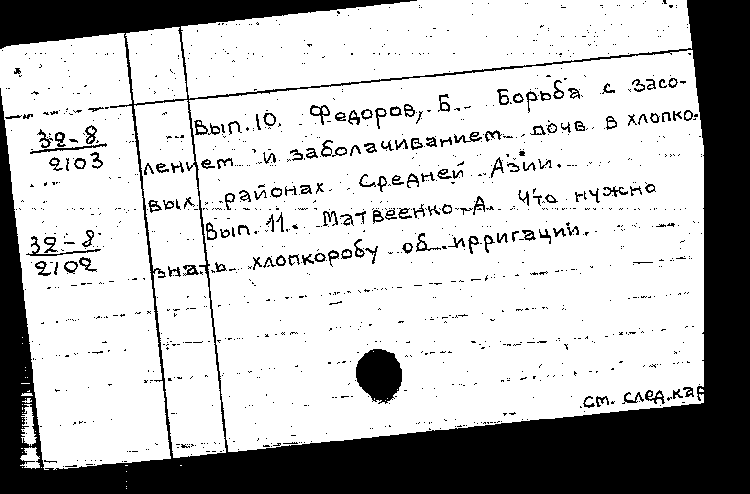 32-8
2103
Вып. 10. Федоров, Б. Борьба с засо-
лением и заболачиванием почв в хлопко-
вых районах Средней Азии.
32-8
2102
Вып. 11. Матвеенко А. Что нужно
знать хлопкоробу об ирригации.
см. след. кар